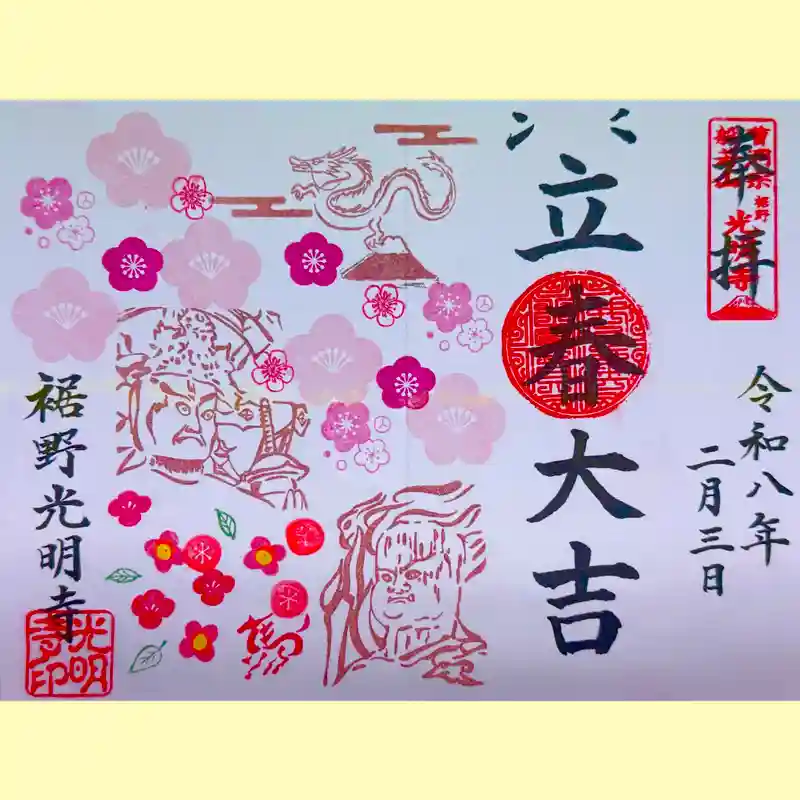 奉拝
曹洞宗 裾野
光明寺
令和八年
二月三日
立春大吉
馬
裾野光明寺
光明寺印